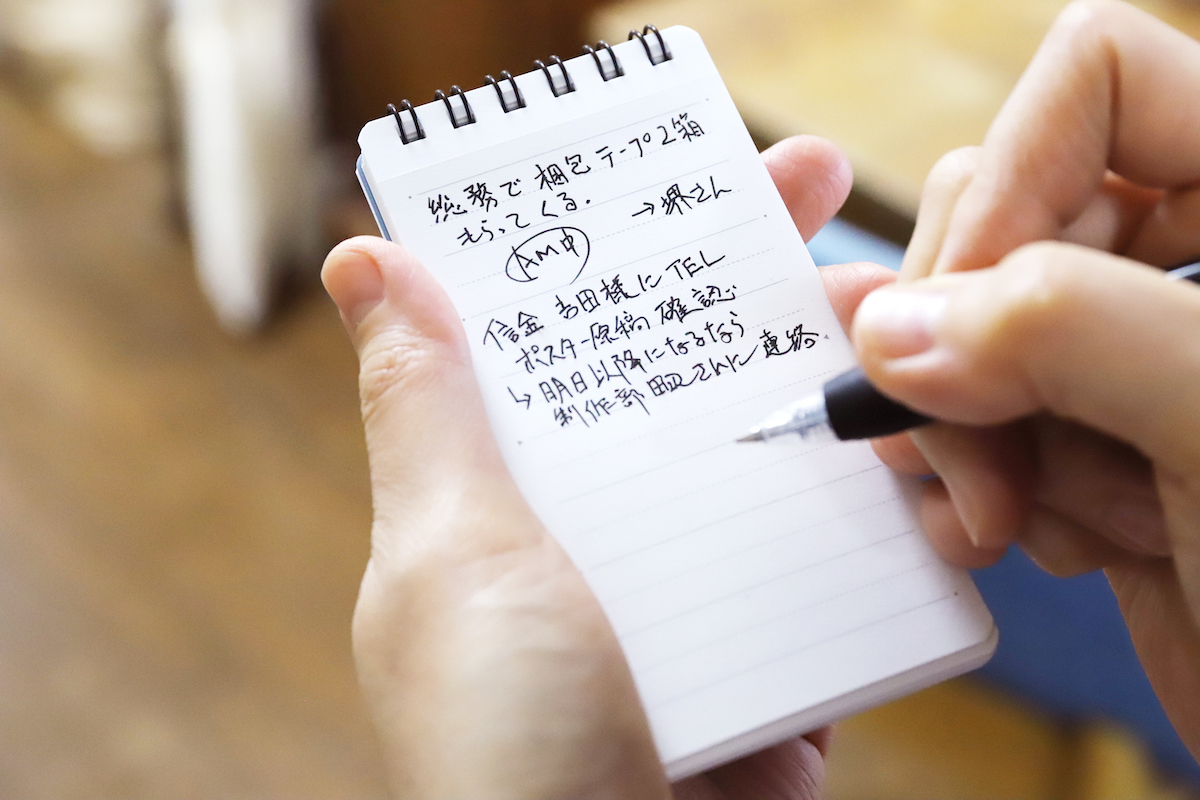 総務で 梱包テープ2箱
もらってくる.
→堺さん
AM中
信金 吉田様にTEL
ポスター原稿 確認
↳明日以降になるなら
制作部 田辺さんに連絡.